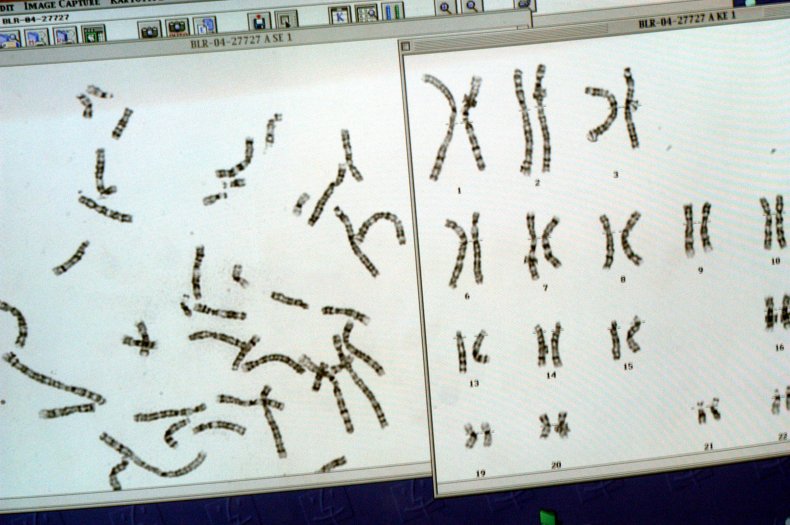 DIT IMAGE CAPTURE
BLR-04-27727
K
BLR-04-27727 A SE 1
BLR-04-27727 A KE 1
1
2
3
6
7
8
9
10
13
14
15
16
19
20
21
22